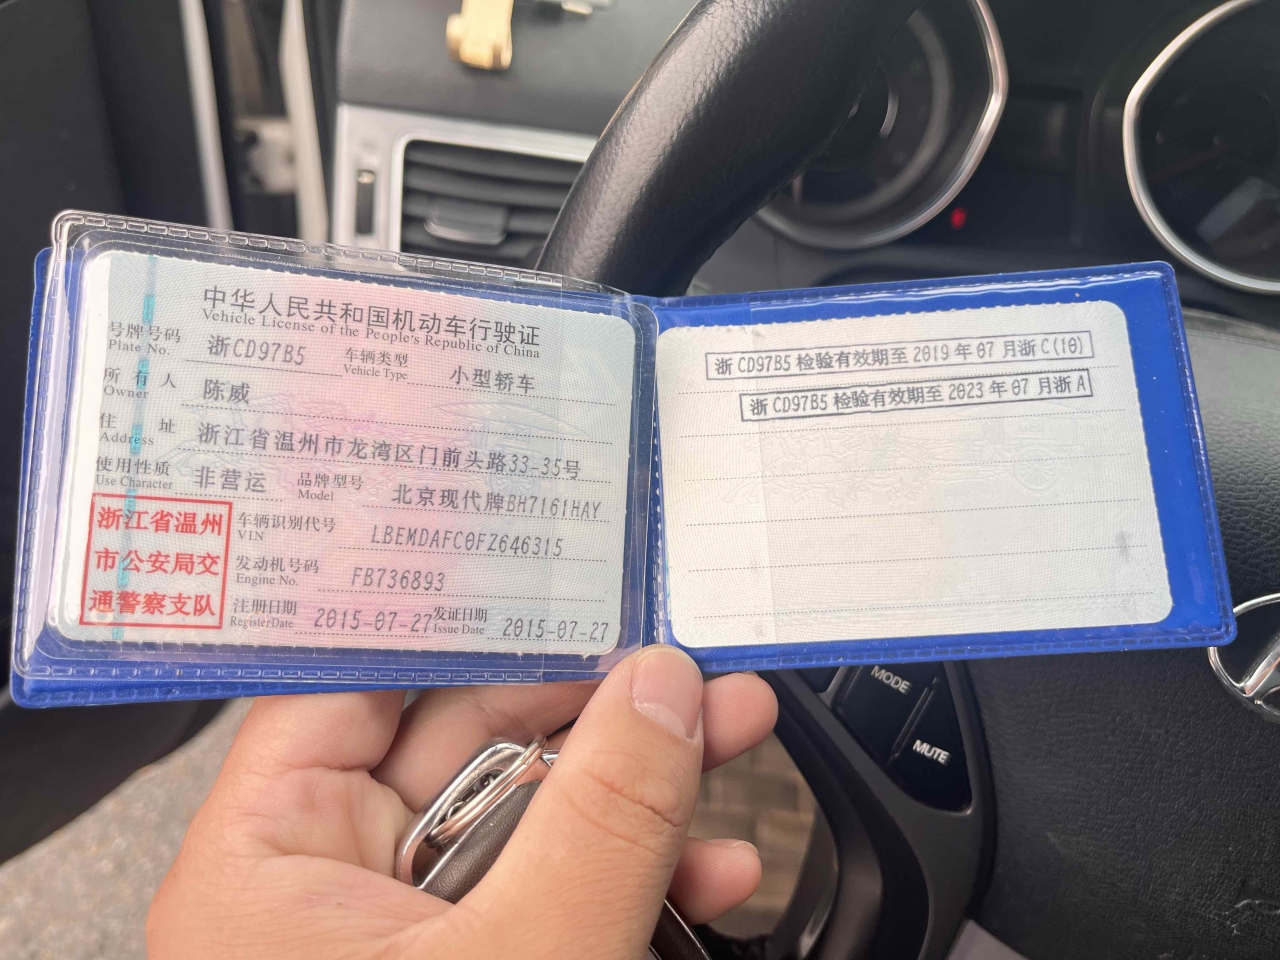 中华人民共和国机动车行驶证
Vehicle License of the People's Republic of China
号牌号码 浙CD97B5 车辆类型 小型轿车
Plate No. Vehicle Type
所有人 陈威
Owner
住址 浙江省温州市龙湾区门前头路33-35号
Address
使用性质 非营运 品牌型号 北京现代牌BH7161HAY
Use Character Model
浙江省温州
市公安局交
通警察支队
车辆识别代号 LBEMDAFC0FZ646315
VIN
发动机号码 FB736893
Engine No.
注册日期 2015-07-27 发证日期 2015-07-27
Register Date Issue Date
浙CD97B5检验有效期至2019年07月浙C(10)
浙CD97B5检验有效期至2023年07月浙A
MODE
MUTE